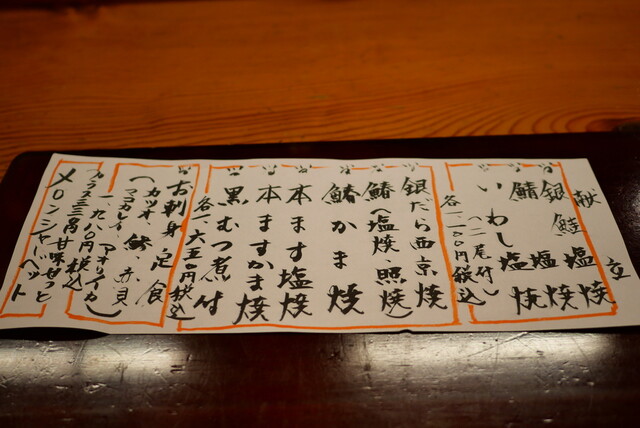 献立
銀鮭塩焼
鯖塩焼
いわし塩焼
（二尾付）
各一、一〇〇円税込
銀だら西京焼
鰆（塩焼・照焼）
鰆かま焼
本ます塩焼
本ますかま焼
黒むつ煮付
各一、六五〇円税込
お刺身定食
（カツオ、鯵、赤貝
マコカレイ、アオリイカ）
一、九八〇円税込
プラス三三〇円甘味せっと
メロンシャーベット